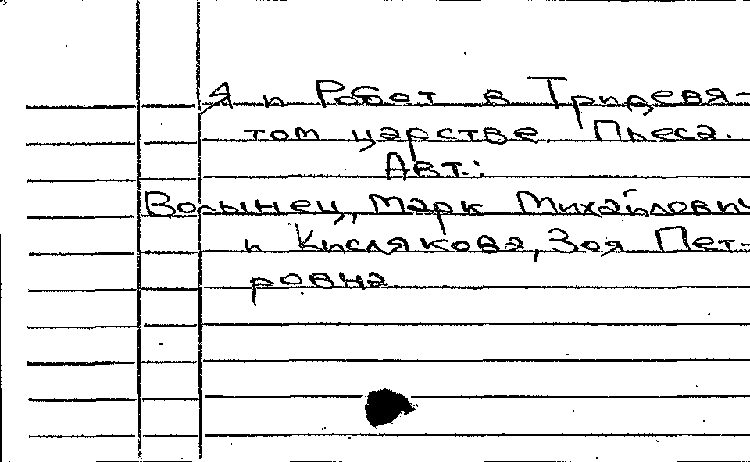 Я и Робот в Тридевя-
том царстве. Пьеса.
Авт.:
Волынец, Марк Михайлович
и Кислякова, Зоя Пет-
ровна.